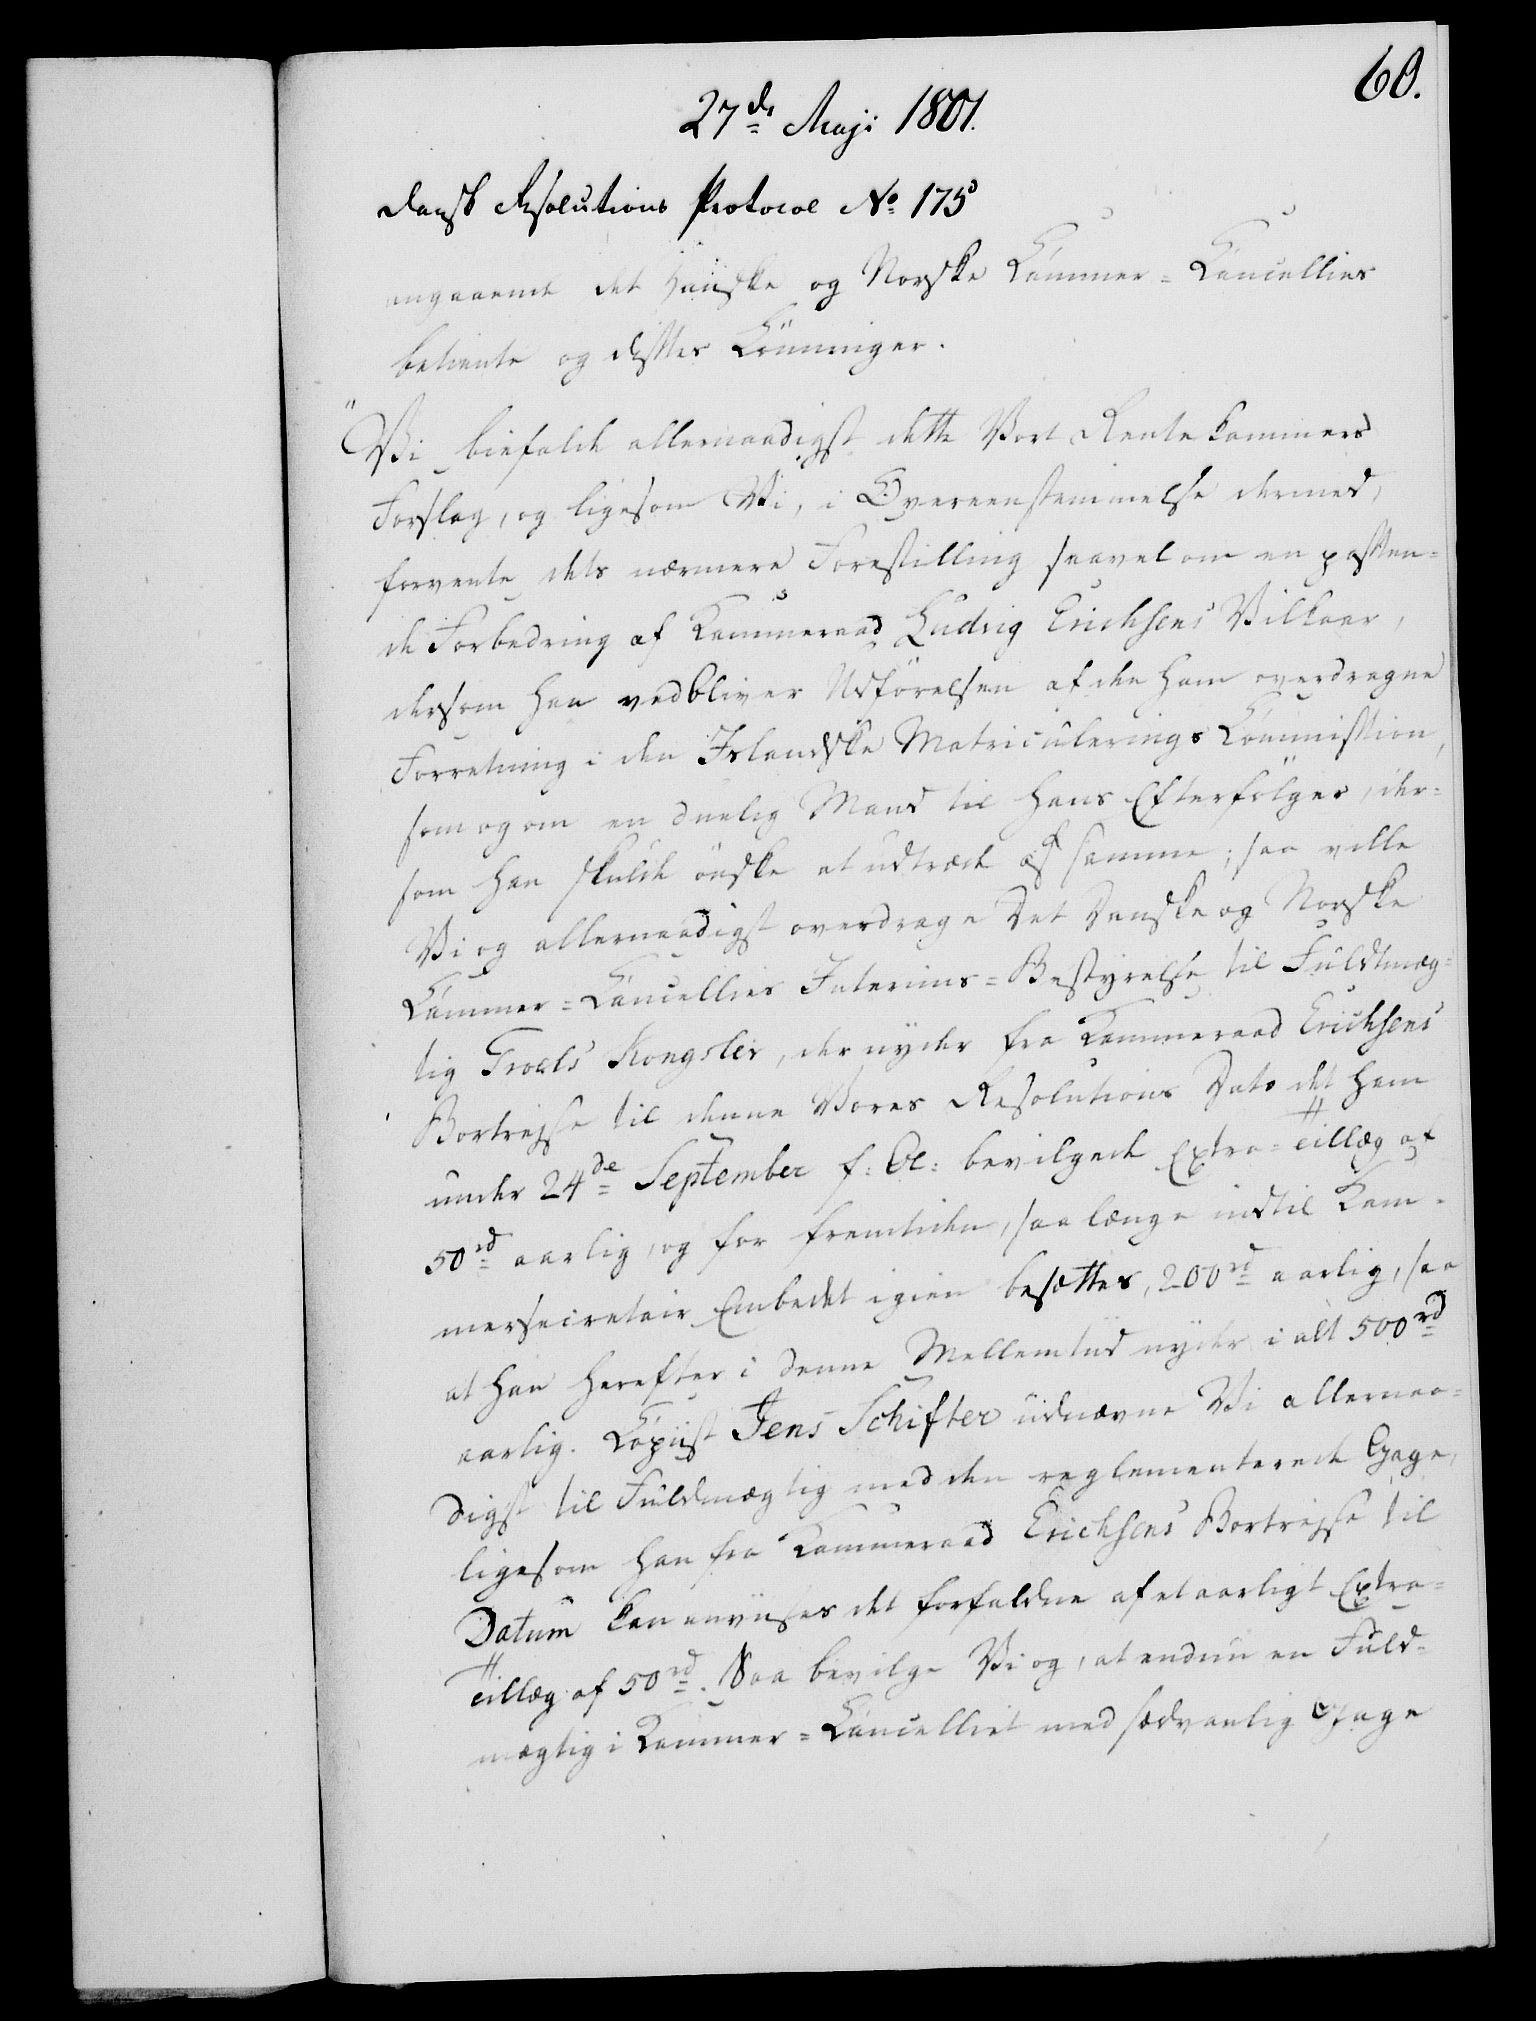 60.
27de Maji 1801.
Dansk Resolutions Protocol No 175
angaaende det danske og Norske Kammer-Cancellies
betiente og disses Lönninger.
"Vi bifalde allernaadigst dette Vort Rentekammers
Forslag, og ligesom Vi, i Overeensstemmelse dermed,
forvente dets nærmere Forestilling saavel om en passen-
de Forbedring af Kammeraad Ludvig Erichsens Vilkaar,
dersom han vedbliver Udførelsen af den ham overdragne
Forretning i den Islandske Matriculerings Commission,
som og om en duelig Mand til hans Efterfölger, der-
som han skulde önske at udtræde af samme; saa ville
Vi og allernaadigst overdrage Det Danske og Norske
Kammer-Cancellies Interims-Bestyrelse til Fuldmæg-
tig Troels Kongslev, der nyder fra Kammeraad Erichsens
Bortrejse til denne Vores Resolutions Dato det ham
under 24de September f: A: bevilgede Extra-Tillæg af
50rd aarlig, og for fremtiden, saa længe indtil Kam-
mersecretair Embedet igien besættes, 200rd aarlig, saa
at han herefter i denne Mellemtid nyder i alt 500rd
aarlig. Copiist Jens Schifter udnævne Vi allernaa-
digst til Fuldmægtig med den reglementerede Gage,
ligesom han fra Kammeraad Erichsens Bortrejse til
Datum kan anvises det forfaldne af et aarligt Extra-
Tillæg af 50rd. Saa bevilge Vi og, at endnu en Fuld-
mægtig i Kammer-Cancelliet med sædvanlig Gage